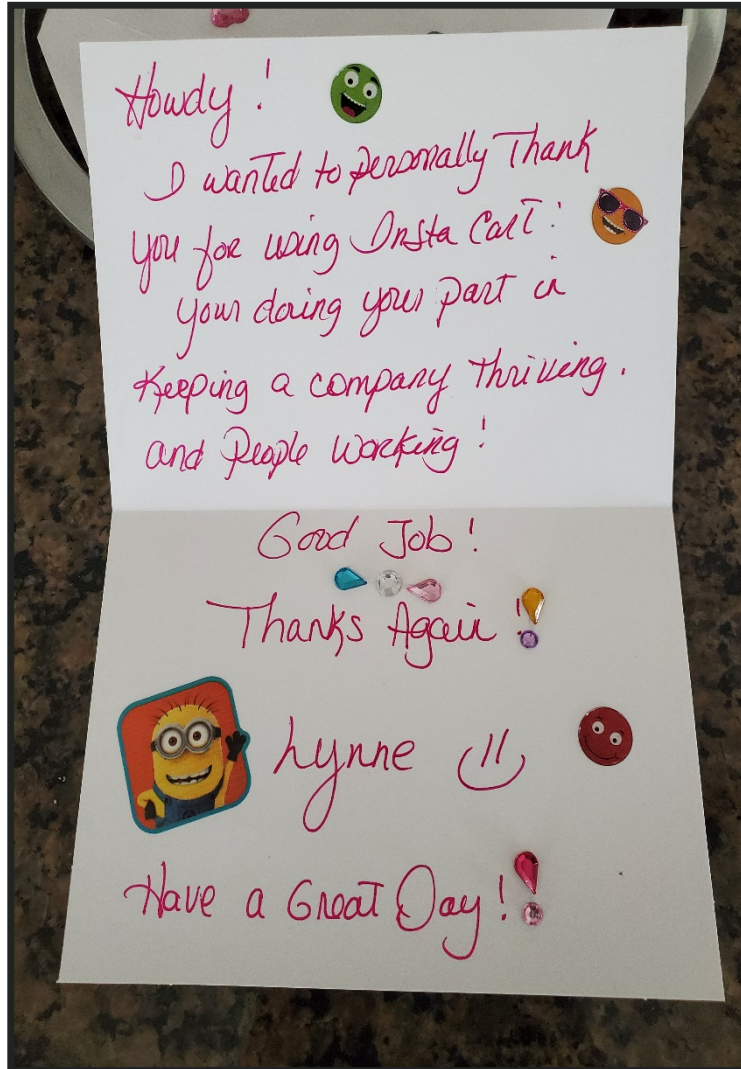 Howdy!
I wanted to personally Thank
you for using Insta Cart!
your doing your part in
Keeping a company Thriving.
and People Working!
Good Job!
Thanks Again!
Lynne
Have a Great Day!